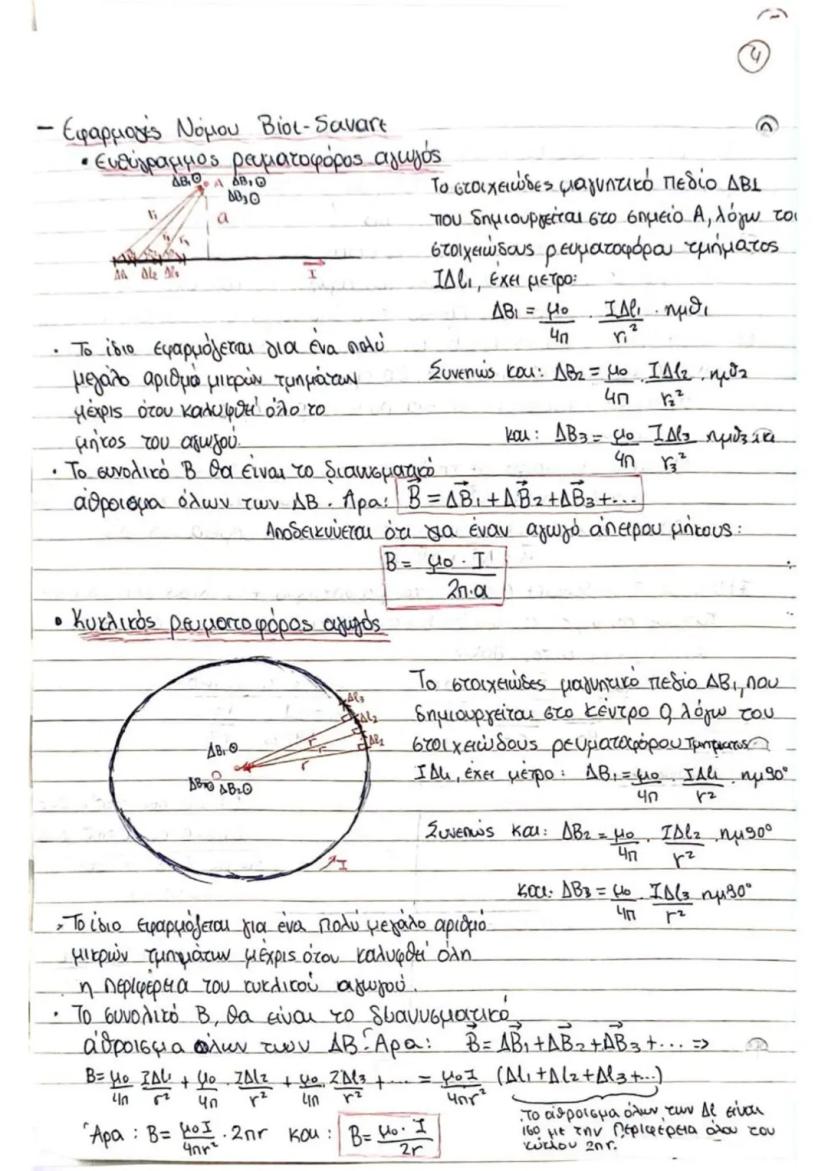 4
- Εφαρμογές Νόμου Biot-Savart
• Ευθύγραμμος ρευματοφόρος αγωγός
ΔΒ₁⊙ A ΔΒ₂⊙
ΔΒ₃⊙
r₁
a
Δl₁ Δl₂ Δl₃
I
Το στοιχειώδες μαγνητικό πεδίο ΔΒ1
που δημιουργείται στο σημείο Α, λόγω του
στοιχειώδους ρευματοφόρου τμήματος
ΙΔl₁, έχει μέτρο:
ΔΒ₁ = μο/4π · ΙΔl₁/r₁² · ημθ₁
• Το ίδιο εφαρμόζεται για ένα πολύ
μεγάλο αριθμό μικρών τμημάτων
μέχρις ότου καλυφθεί όλο το
μήκος του αγωγού.
Συνεπώς και: ΔΒ₂ = μο/4π · ΙΔl₂/r₂² · ημθ₂
και: ΔΒ₃ = μο/4π ΙΔl₃/r₃² ημθ₃
• Το συνολικό Β θα είναι το διανυσματικό
άθροισμα όλων των ΔΒ. Άρα: B⃗ = ΔB⃗₁ + ΔB⃗₂ + ΔB⃗₃ + ...
Αποδεικνύεται ότι για έναν αγωγό άπειρου μήκους:
Β = μο · Ι/2π·α
• Κυκλικός ρευματοφόρος αγωγός
Δl₃
Δl₂
ΔΒ₁⊙
r
r
r
ΔΒ₂⊙
I
Το στοιχειώδες μαγνητικό πεδίο ΔΒ₁, που
δημιουργείται στο κέντρο Ο λόγω του
στοιχειώδους ρευματοφόρου τμήματος
ΙΔl₁, έχει μέτρο: ΔΒ₁ = μο/4π · ΙΔl₁/r² · ημ90°
Συνεπώς και: ΔΒ₂ = μο/4π · ΙΔl₂/r² · ημ90°
και: ΔΒ₃ = μο/4π ΙΔl₃/r² ημ90°
• Το ίδιο εφαρμόζεται για ένα πολύ μεγάλο αριθμό
μικρών τμημάτων μέχρις ότου καλυφθεί όλη
η περιφέρεια του κυκλικού αγωγού.
• Το συνολικό Β, θα είναι το διανυσματικό
άθροισμα όλων των ΔΒ. Άρα: B⃗ = ΔB⃗₁ + ΔB⃗₂ + ΔB⃗₃ + ... =>
Β = μο/4π ΙΔl₁/r² + μο/4π · ΙΔl₂/r² + μο/4π · ΙΔl₃/r² + ... = μοΙ/4πr² (Δl₁ + Δl₂ + Δl₃ + ...)
Το άθροισμα όλων των Δl είναι
ίσο με την περιφέρεια όλου του
κύκλου 2πr.
Άρα: Β = μοΙ/4πr² · 2πr και: Β = μο · Ι/2r